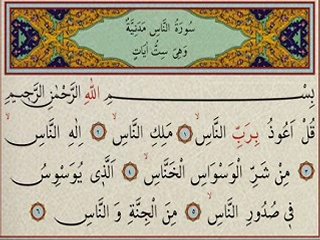 سُورَةُ النَّاسِ مَدَنِيَّةٌ
وَهِىَ سِتُّ اٰيَاتٍ
بِسْـــمِ اللّٰهِ الرَّحْمٰنِ الرَّحٖيمِ
قُلْ اَعُوذُ بِرَبِّ النَّاسِۙ ﴿١﴾ مَلِكِ النَّاسِۙ ﴿٢﴾ اِلٰهِ النَّاسِۙ
﴿٣﴾ مِنْ شَرِّ الْوَسْوَاسِ الْخَنَّاسِۙ ﴿٤﴾ اَلَّذٖى يُوَسْوِسُ
فٖى صُدُورِ النَّاسِۙ ﴿٥﴾ مِنَ الْجِنَّةِ وَ النَّاسِ ﴿٦﴾